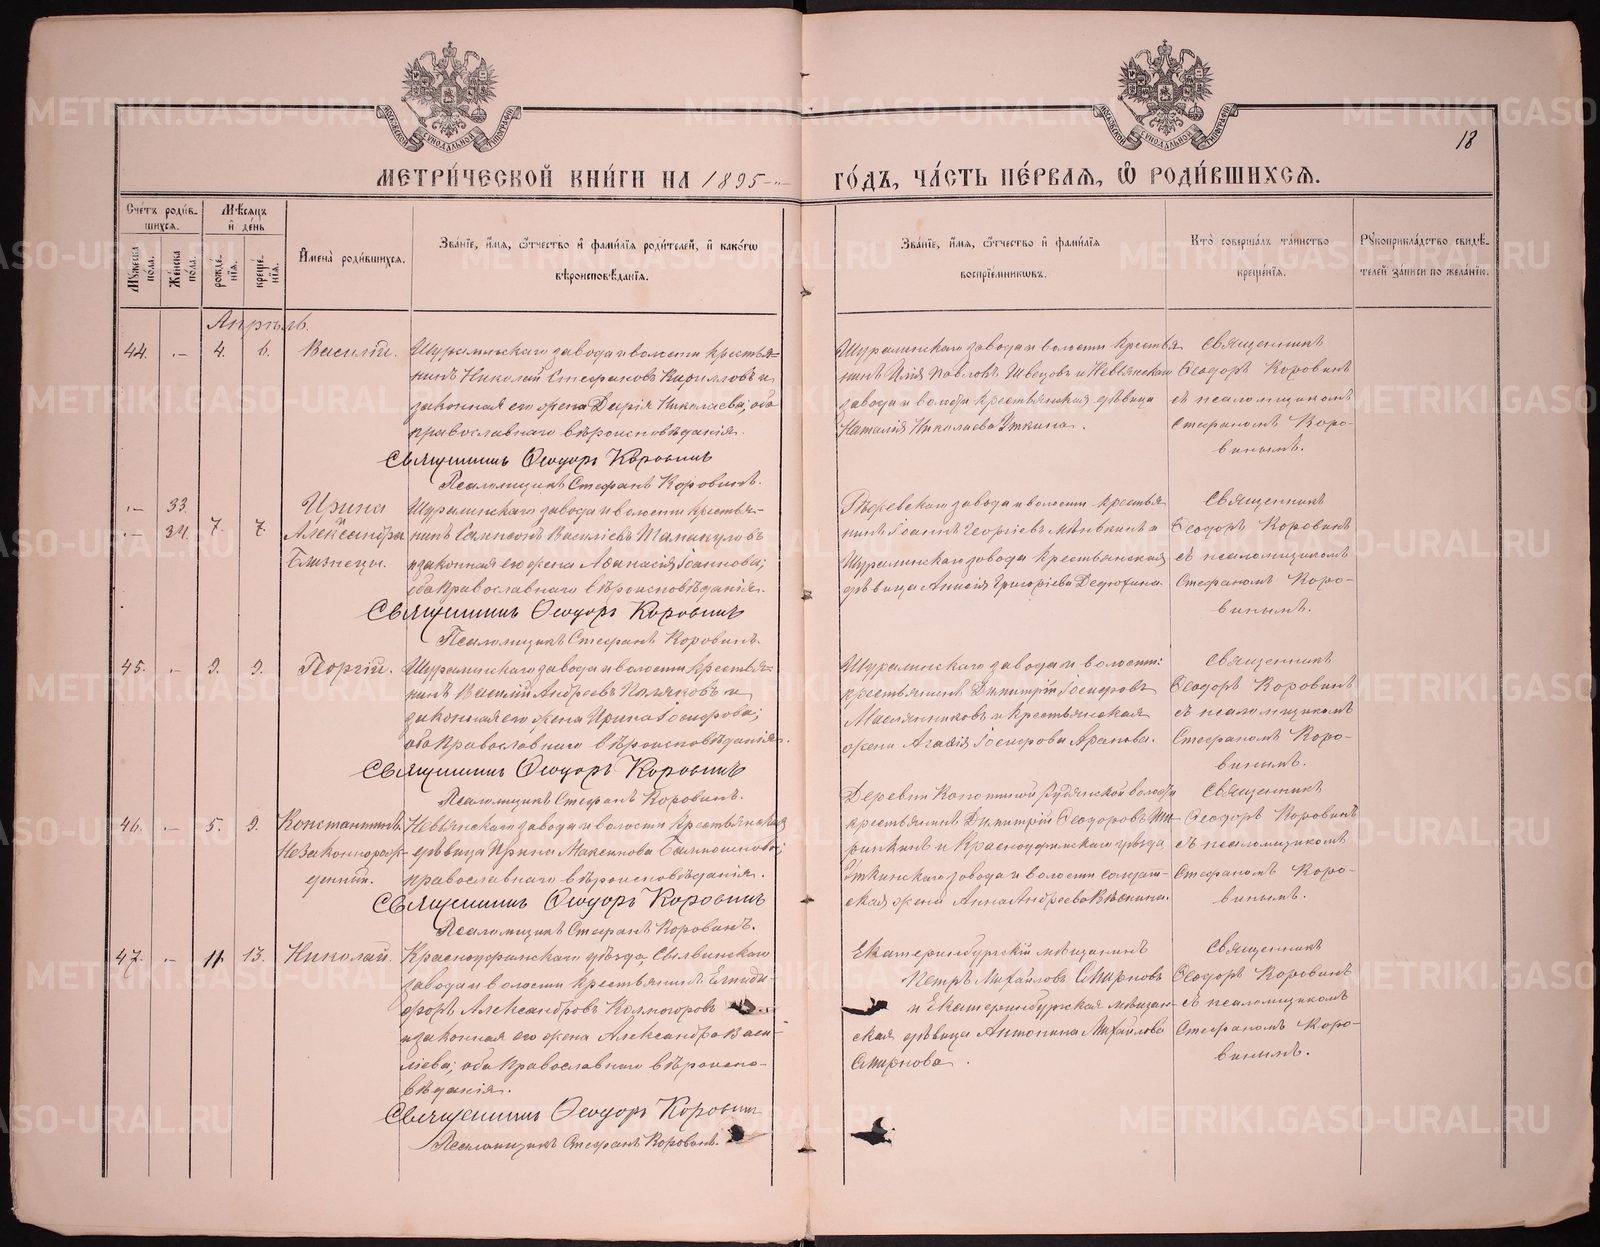 МЕТРИ́ЧЕСКОЙ КНИ́ГИ НА 1895 ГО́ДЪ, ЧА́СТЬ ПЕ́РВАЯ, Ѡ РОДИ́ВШИХСЯ.
18
МОСКОВСКОЙ СѴНОДАЛЬНОЙ ТИПОГРАФІИ
МОСКОВСКОЙ СѴНОДАЛЬНОЙ ТИПОГРАФІИ
Сче́тъ роди́в-
шихся.
Му́жеска по́ла.
Же́нска по́ла.
Мѣ́сяцъ
и де́нь
рожде́-
нія.
креще́-
нія.
Имена̀ роди́вшихся.
Зва́ніе, и́мя, ѻ́тчество и фами́лія роди́телей, и како́гѡ
вѣроисповѣ́данія.
Зва́ніе, и́мя, ѻ́тчество и фами́лія
воспріе́мниковъ.
Кто̀ соверша́лъ та́инство
креще́нія.
Рукоприкла́дство свидѣ́-
телей за́писи по жела́нію.
Апрѣль.
44. 4. 6. Василій.
Шуралинскаго завода и волости крестья-
нинъ Николай Стефановъ Кирилловъ и
законная его жена Дарія Николаева; оба
православнаго вѣроисповѣданія.
Священникъ Ѳеодоръ Коровинъ
Псаломщикъ Стефанъ Коровинъ.
Шуралинскаго завода и волости крестья-
нинъ Илія Павловъ Швецовъ и Невьянскаго
завода и волости крестьянская дѣвица
Наталія Николаева Уткина.
Священникъ
Ѳеодоръ Коровинъ
съ псаломщикомъ
Стефаномъ Коро-
винымъ.
33. Ирина
и
34. 7. 7. Александра
Близнецы.
Шуралинскаго завода и волости крестья-
нинъ Сампсонъ Василіевъ
и законная его жена Аѳанасія Іоаннова;
оба Православнаго вѣроисповѣданія.
Священникъ Ѳеодоръ Коровинъ
Псаломщикъ Стефанъ Коровинъ.
завода и волости крестья-
нинъ Іоаннъ Георгіевъ и
Шуралинскаго завода крестьянская
дѣвица Анисія Григоріева Дедюхина.
Священникъ
Ѳеодоръ Коровинъ
съ псаломщикомъ
Стефаномъ Коро-
винымъ.
45. 9. 9. Георгій.
Шуралинскаго завода и волости крестья-
нинъ Василій Андреевъ Поляковъ и
законная его жена Ирина Іосифова;
оба Православнаго вѣроисповѣданія.
Священникъ Ѳеодоръ Коровинъ
Псаломщикъ Стефанъ Коровинъ.
Шуралинскаго завода и волости:
крестьянинъ Димитрій Іосифовъ
Масленниковъ и крестьянская
жена Агафія Іосифова Арапова.
Священникъ
Ѳеодоръ Коровинъ
съ псаломщикомъ
Стефаномъ Коро-
винымъ.
46. 5. 9. Константинъ
Незаконнорож-
денный.
Невьянскаго завода и волости крестьянская
дѣвица Ирина Максимова
православнаго вѣроисповѣданія.
Священникъ Ѳеодоръ Коровинъ
Псаломщикъ Стефанъ Коровинъ.
Деревни волости
крестьянинъ Димитрій Ѳеодоровъ
и Красноуфимскаго уѣзда
завода и волости солдат-
ская жена Анна Андреева
Священникъ
Ѳеодоръ Коровинъ
съ псаломщикомъ
Стефаномъ Коро-
винымъ.
47. 11. 13. Николай.
Красноуфимскаго уѣзда, Сылвинскаго
завода и волости крестьянинъ Елпиди-
форъ Александровъ Колмогоровъ
и законная его жена Александра Васи-
ліева; оба Православнаго вѣроиспо-
вѣданія.
Священникъ Ѳеодоръ Коровинъ
Псаломщикъ Стефанъ Коровинъ.
Екатеринбургскій мѣщанинъ
Петръ Михайловъ Смирновъ
и Екатеринбургская мѣщан-
ская дѣвица Антонина Михайлова
Смирнова.
Священникъ
Ѳеодоръ Коровинъ
съ псаломщикомъ
Стефаномъ Коро-
винымъ.
METRIKI.GASO-URAL.RU